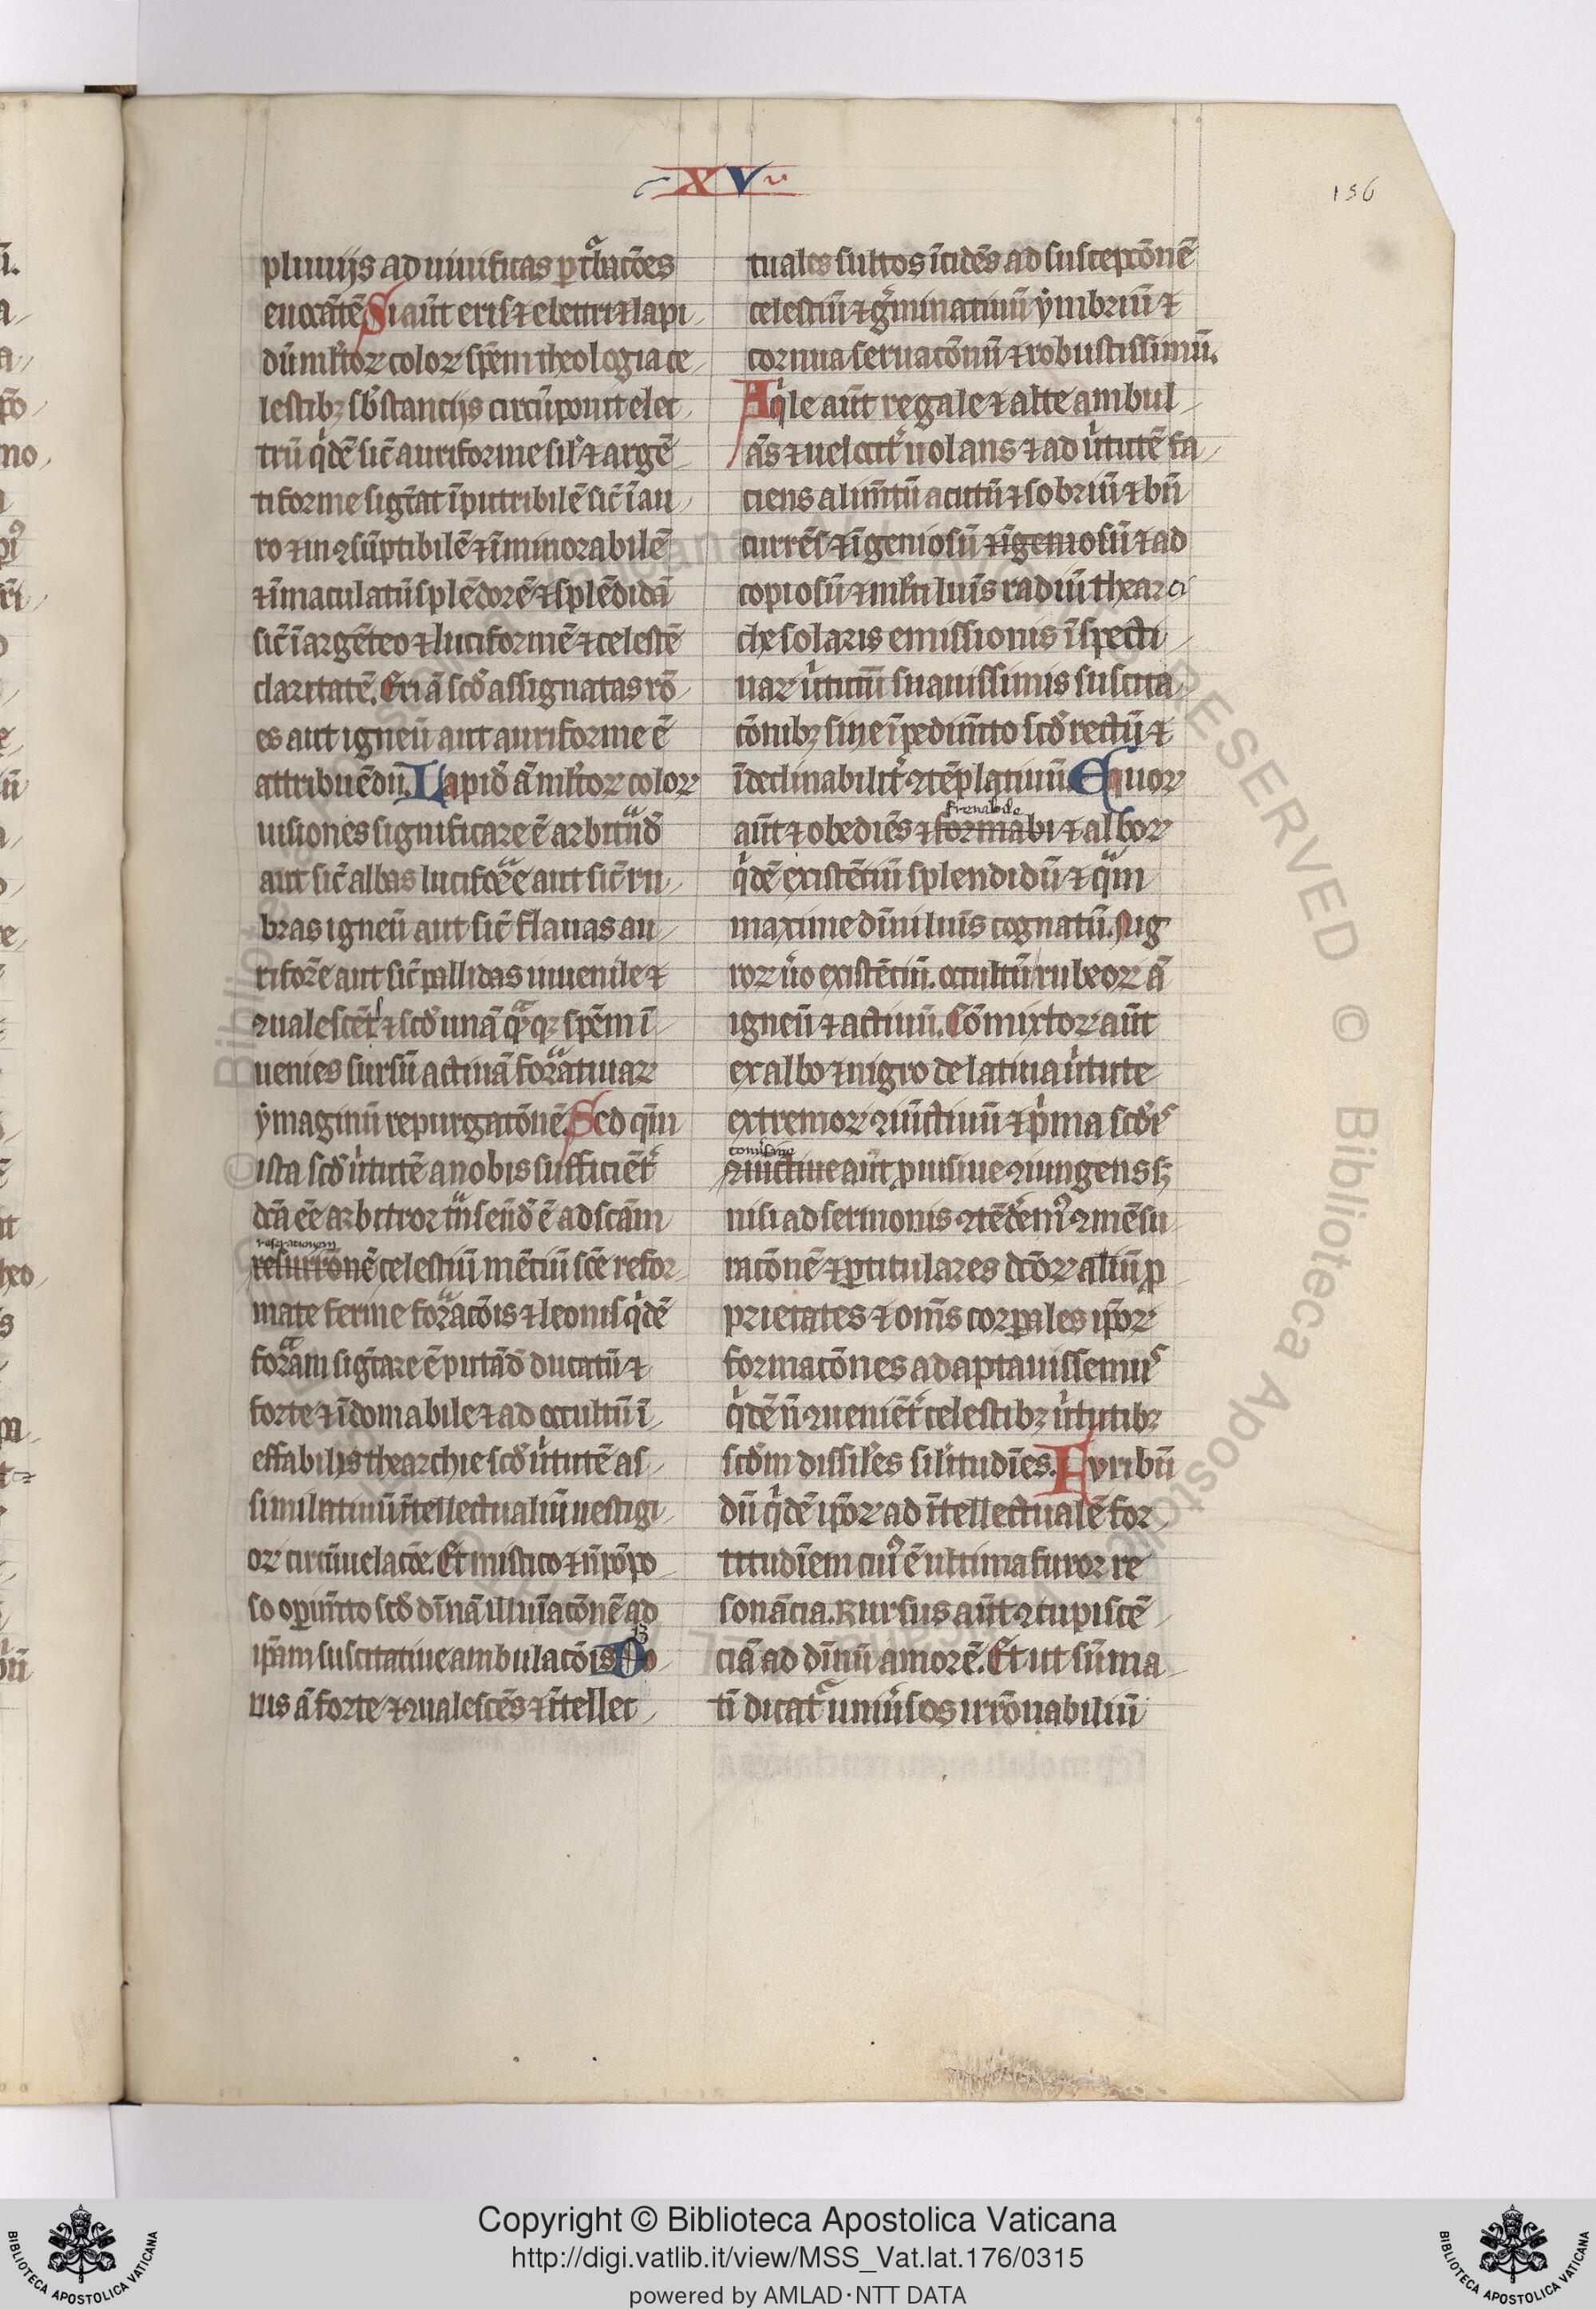 XV
156
pluuijs ad uiuificas ꝑtͣbac̄oēs
euocāte. Si aūt eris ⁊ electri ⁊ lapi
dū ml̓toꝝ coloꝝ spēm theologia ce
lestibꝫ sb̄stanciis circūponit elec
trū q̇dē sic̄ auriforme sil̓ ⁊ argē
tiforme sigt̄at īputribilē sic̄ ī au
ro ⁊ inꝯsūptibilē ⁊ īminorabilē
⁊ īmaculatū splēdorē ⁊ splēdidā
sic̄ ī argēteo ⁊ luciformē ⁊ celestē
claritatē. Eri ā scd̓ assignatas rō
es aut igneū aut auriforme ē
attribuēdū. Lapid̓ ā ml̓toꝝ coloꝝ
uisiones significare ē arbitͣnd̓
aut sic̄ albas luciforͣe aut sic̄ ru
bras igneū aut sic̄ flauas au
riforē aut sic̄ pallidas iuuenile ⁊
ꝯualescēt ⁊ scd̓ unā qͣꝝqꝫ spēm ī
uenies sursū actiuā forͣatiuaꝝ
ymaginū repurgatōnē. Sed qm̄
ista scd̓ u̇tutē a nobis sufficiēt̓
dc̄a ēē arbitror tͣnseūd̓ ē ad scām
reserationem
resurrōnē celestiū mētiū scē refor
mate ferine forͣacōis ⁊ leonis q̇dē
forͣam sigt̄are ē putād̓ ducatū ⁊
forte ⁊ īdomabile ⁊ ad occultū ī
effabilis thearchie scd̓ u̇tutē as
similatiuū ītellectualiū uestigi
oꝝ circūuelac̄oe. Et mistico ⁊ n̄ pōpo
so oꝑim̄to scd̓ dīnā illuīacōnē ad
ip̄am suscitatiue ambulacōis. Bo
uis ā forte ⁊ ꝯualescēs ⁊ ītellec
tuales sultos īcidēs ad suscepcōnē
celestiū ⁊ g̓minatiuū ymbriū ⁊
cornua seruatōnū ⁊ robustissimū.
Aq̇le aūt regale ⁊ alte ambul
ās ⁊ uelocit̓ uolans ⁊ ad u̇tutē fa
ciens alim̄tū acutū ⁊ sobriū ⁊ bn̄
currēs ⁊ īgeniosū ⁊ īgeniosū ⁊ ad
copiosū ⁊ ml̓ti luīs radiū thear
che solaris emissionis īspecti
uaꝝ u̇tutū suauissimis suscita
cōnibꝫ sine īpedim̄to scd̓ rectū ⁊
īdeclinabilit̓ ꝯtēplatiuū. Equoꝝ
frenabile
aūt ⁊ obediēs ⁊ formabi ⁊ alboꝝ
q̇dē existētiū splendidū ⁊ qͣm
maxime diuī luīs cognatū. Nig
roꝝ u̓o existētiū. occultū rubeoꝝ ā
igneū ⁊ actiuū. Cōmixtoꝝ aūt
ex albo ⁊ nigro delatiua u̇tute
extremoꝝ ꝯiūctiuū ⁊ ṗma scd̓is
conu̓siue
ꝯiūctiue aūt ꝓuisiue ꝯiungens sꝫ
nisi ad sermonis ꝯtēdēm᷒ ꝯmēsu
racōnē ⁊ ꝑticulares dc̄oꝝ aīaliū ꝓ
prietates ⁊ om̄s corꝑales ip̄oꝝ
formacōnes adaptauissemus
q̇dē n̄ ꝯueniēt̓ celestibꝫ u̇tutibꝫ
scd̓m dissil̓es sil̓itudīes. Furibū
dū q̇dē ip̄oꝝ ad ītellectualē for
titudīem cui᷒ ē ultima furor re
sonācia. Rursus aūt ꝯcupiscē
ciā ad dīnū amorē. Et ut sūma
tī dicat̃ uniu̓sos irrōnabiliū
Copyright © Biblioteca Apostolica Vaticana
http://digi.vatlib.it/view/MSS_Vat.lat.176/0315
powered by AMLAD·NTT DATA
BIBLIOTECA APOSTOLICA VATICANA
BIBLIOTECA APOSTOLICA VATICANA